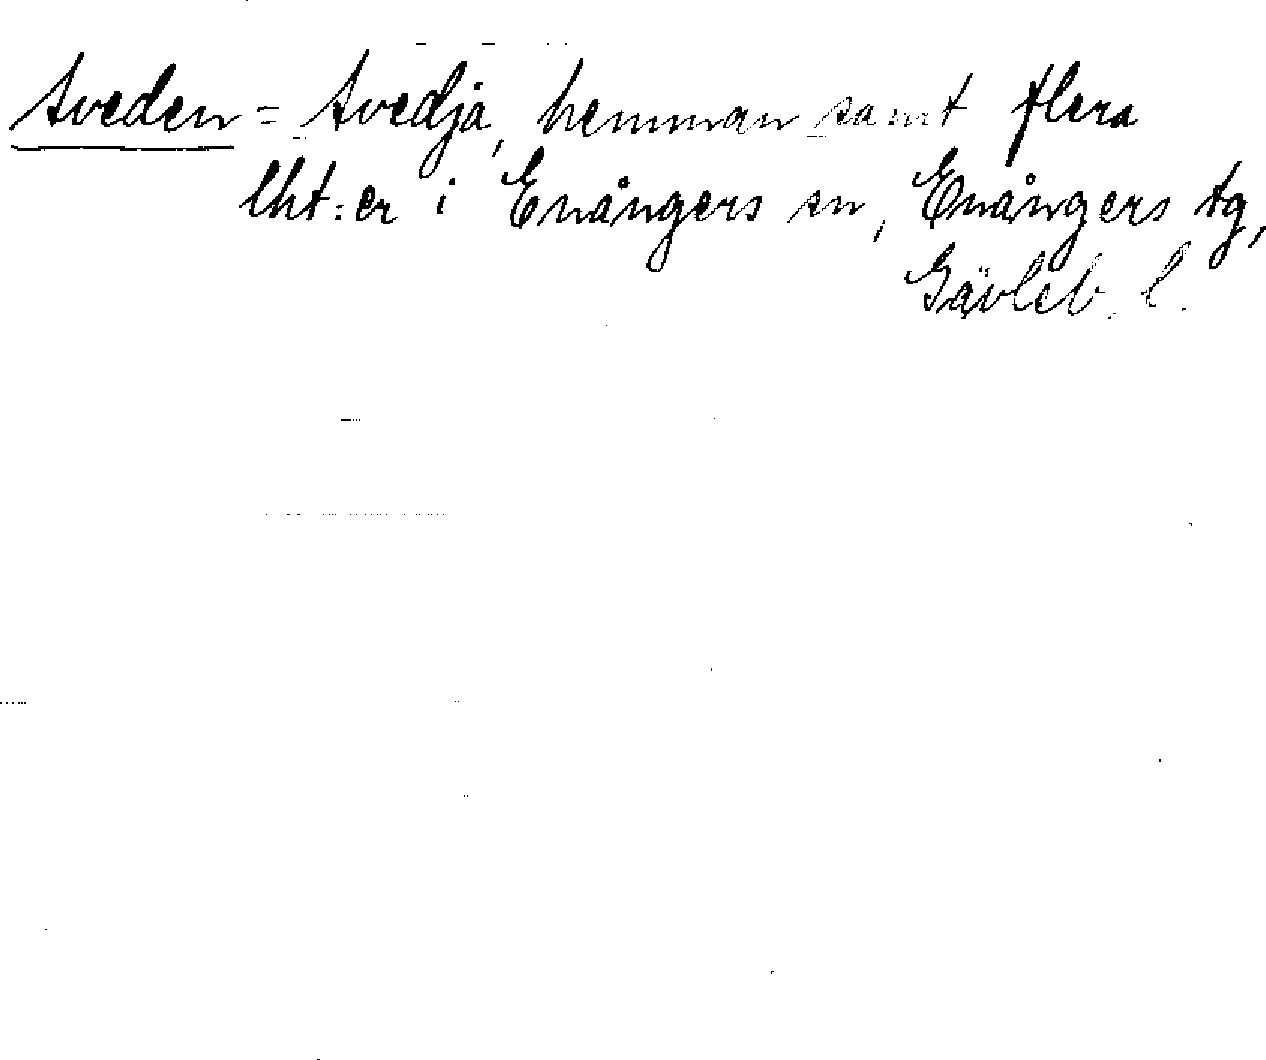 Sveden = Svedja, hemman samt flera
lht:er i Enångers sn, Enångers tg,
Gävleb. l.